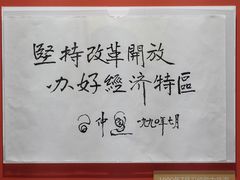 堅持改革開放
办好經济特區
仲勛 一九九〇年七月